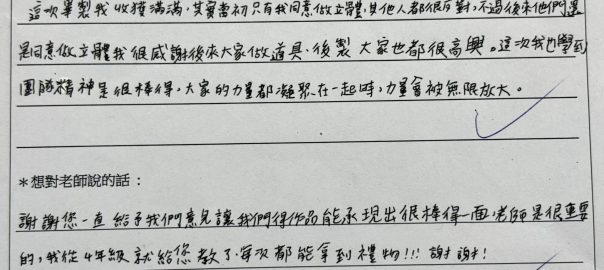 這次畢製我收獲滿滿,其實當初只有我同意做立體,其他人都很反對,不過後來他們還
是同意做立體我很感謝後來大家做道具、後製大家也都很高興。這次我也學到
團隊精神是很棒得,大家的力量都凝聚在一起時,力量會被無限放大。
*想對老師說的話:
謝謝您一直給予我們意見讓我們得作品能呈現出很棒得一面老師是很重要
的,我從4年級就給您教了,每次都能拿到禮物!!!謝謝!